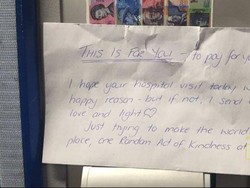 THIS IS FOR YOU - to pay for yo
I hope your hospital visit today w
happy reason - but if not, I send
love and light
Just trying to make the world
place, one Random Act of Kindness a